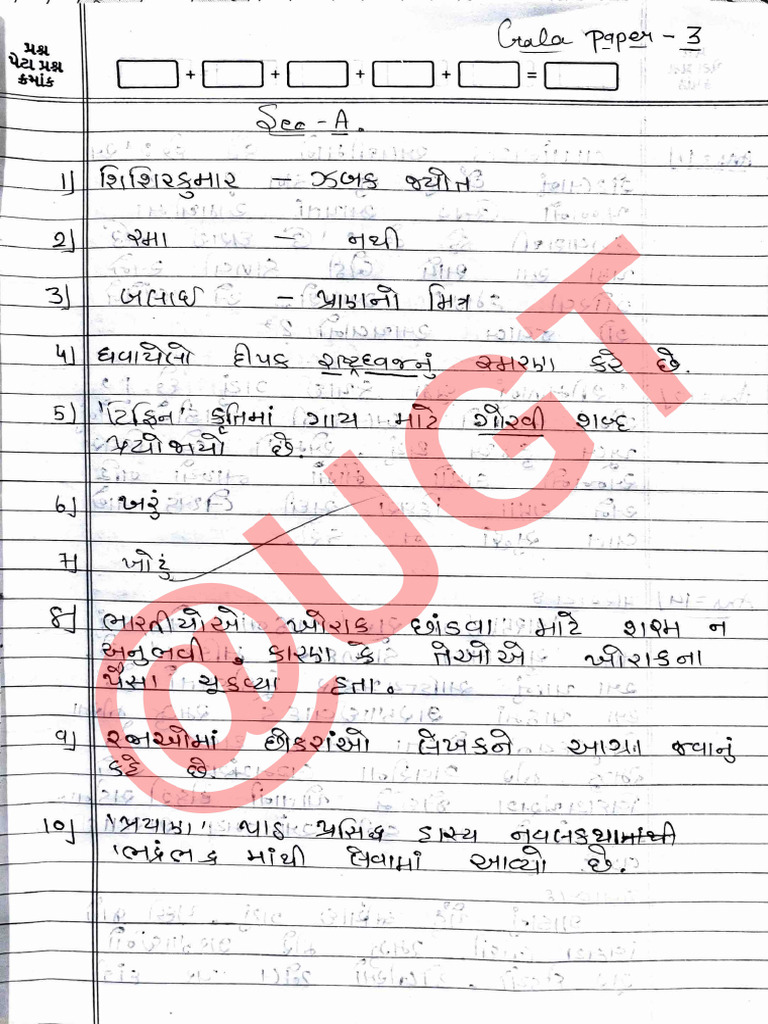 Gala paper - 3
પ્રશ્ન
પેટા પ્રશ્ન
ક્રમાંક
+ + + + =
Sec - A.
1) શિશિરકુમાર - ઝબક જ્યોત
2) રમા - નથી
3) બલાઈ - પ્રાણનો મિત્ર
4) ઘવાયેલો દીપક રાષ્ટ્રધ્વજનું સ્મરણ કરે છે.
5) 'ટિફિન' કૃતિમાં ગાય માટે ગોરવી શબ્દ
પ્રયોજાયો છે.
6) ખરું
7) ખોટું
8) ભારતીયોએ ખોરાક છાંડવા માટે શરમ ન
અનુભવી, કારણ કે તેઓએ ખોરાકના
પૈસા ચૂકવ્યા હતા.
9) રજાઓમાં છોકરાંઓ લેખકને આગ્રા જવાનું
કહે છે.
10) 'પ્રયાણ' પાઠ પ્રસિદ્ધ હાસ્ય નવલકથામાંથી
'ભદ્રંભદ્ર માંથી લેવામાં આવ્યો છે.
@UGT